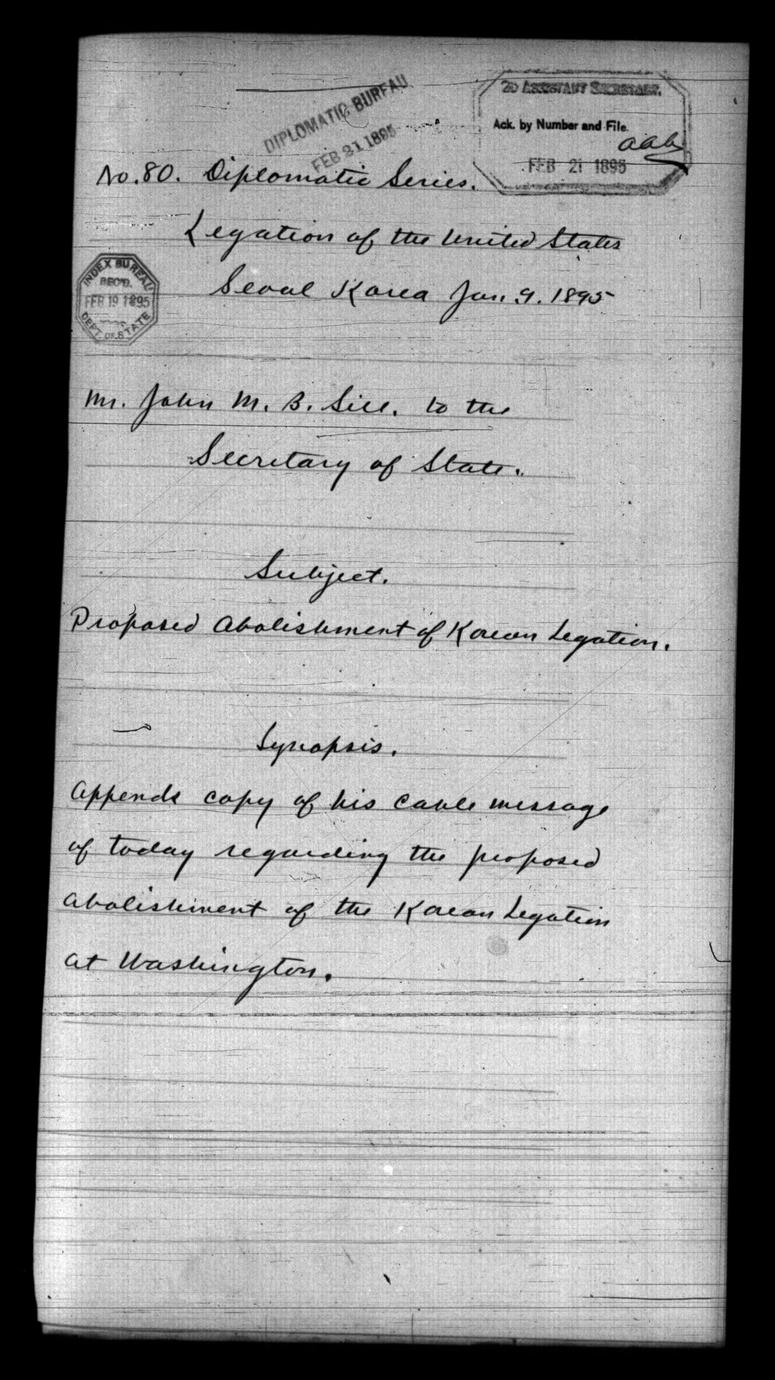 DIPLOMATIC BUREAU
FEB 21 1895
2D ASSISTANT SECRETARY.
Ack. by Number and File.
aaa
FEB 21 1895
No. 80. Diplomatic Series.
Legation of the United States
Seoul Korea Jan. 9. 1895
INDEX BUREAU
REC'D.
FEB 19 1895
DEPT. OF STATE
Mr. John M. B. Sill. to the
Secretary of State.
Subject.
Proposed Abolishment of Korean Legation.
Synopsis.
Appends copy of his cable message
of today regarding the proposed
abolishment of the Korean Legation
at Washington.